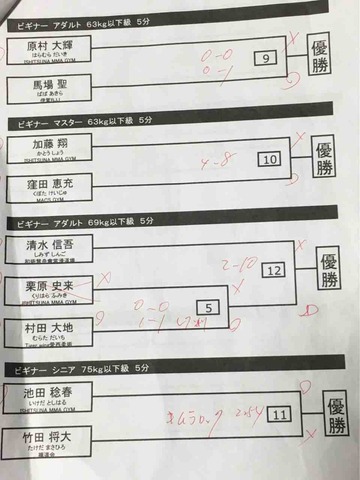 ビギナー アダルト 63kg以下級 5分
原村 大輝
はらむら だいき
ISHITSUNA MMA GYM
0-0
0-1
X
9
優勝
馬場 聖
ばば あきら
ビギナー マスター 63kg以下級 5分
加藤 翔
かとう しょう
ISHITSUNA MMA GYM
X
4-8
10
優勝
窪田 恵充
くぼた けいじゅ
MACS GYM
ビギナー アダルト 69kg以下級 5分
清水 信吾
しみず しんご
X
2-10
12
優勝
栗原 史来
くりはら ふみき
ISHITSUNA MMA GYM
X
0-0
1-1
5
村田 大地
むらた だいち
ビギナー シニア 75kg以下級 5分
池田 稔春
いけだ としはる
ISHITSUNA MMA GYM
キムラロック 2:54
11
優勝
竹田 将大
たけだ まさひろ
X